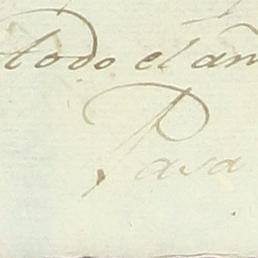 todo el añ
Pasa